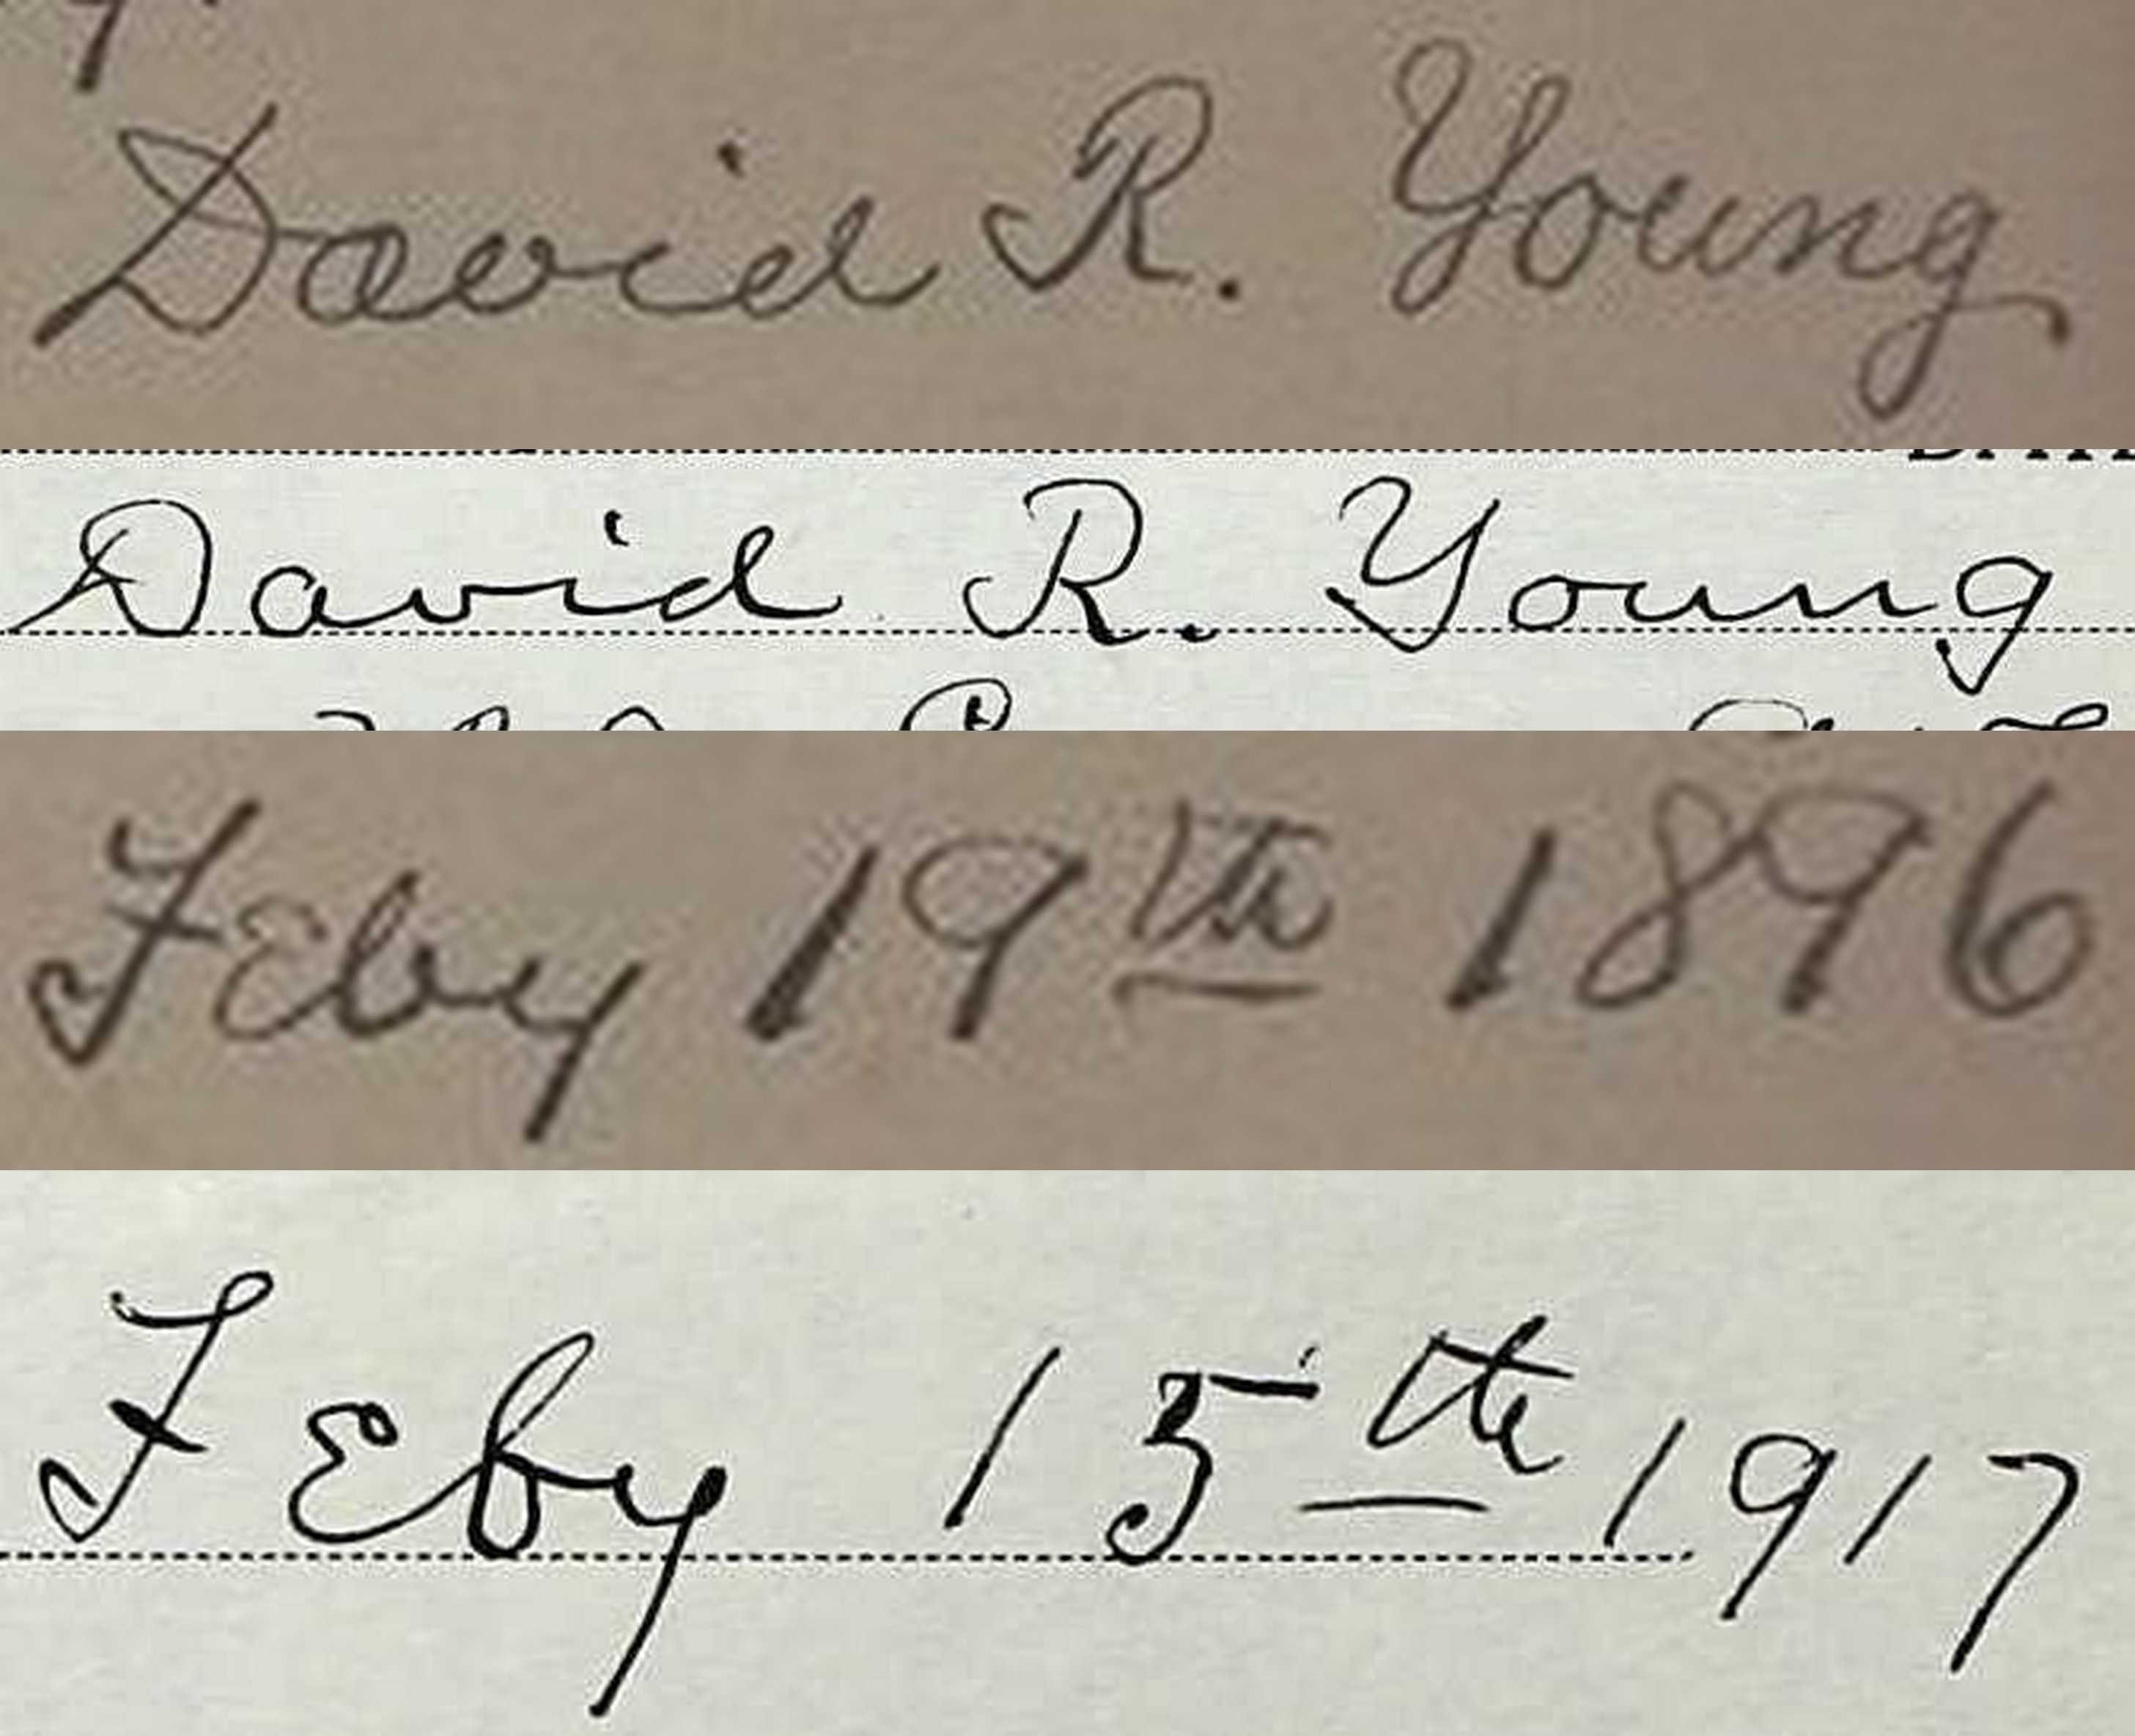 David R. Young
David R. Young
Feby 19th 1896
Feby 15th 1917